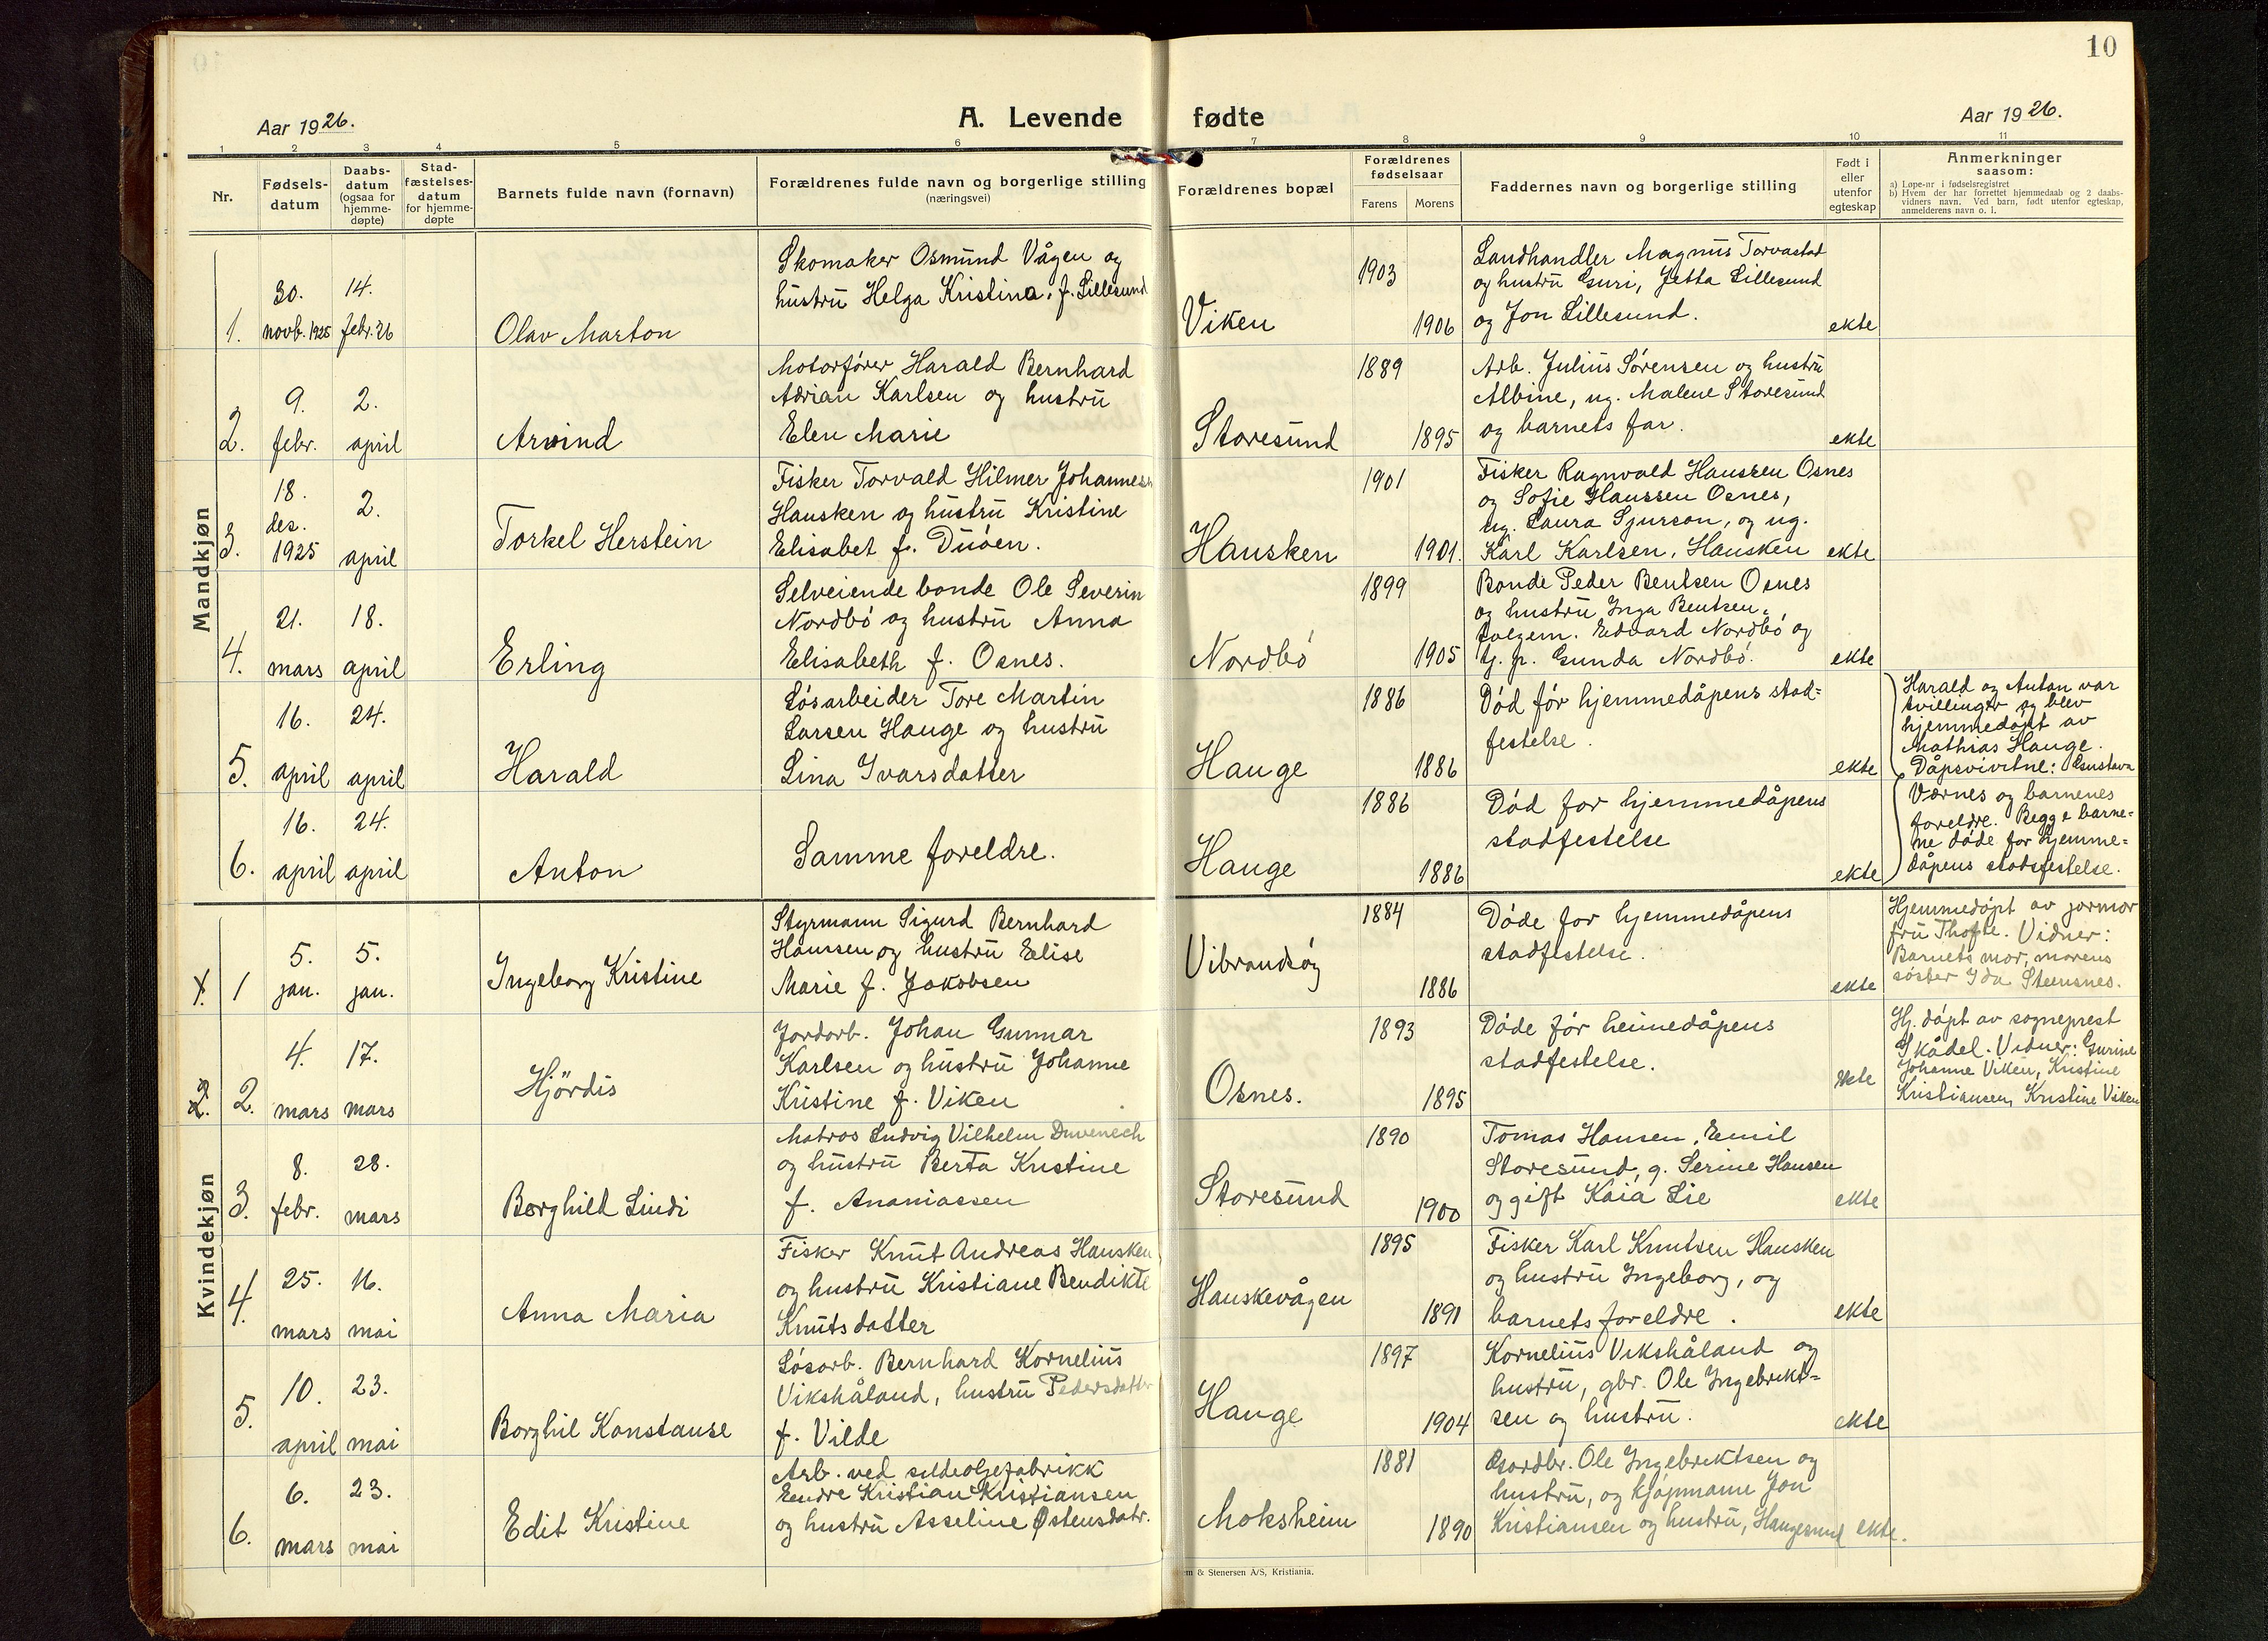 10
Aar 1926.
A. Levende fødte
Aar 1926.
1 2 3 4 5 6 7 8 9 10 11
Nr.
Fødsels-
datum
Daabs-
datum
(ogsaa for
hjemme-
døpte)
Stad-
fæstelses-
datum
for hjemme-
døpte
Barnets fulde navn (fornavn)
Forældrenes fulde navn og borgerlige stilling
(næringsvei)
Forældrenes bopæl
Forældrenes
fødselsaar
Farens Morens
Faddernes navn og borgerlige stilling
Født i
eller
utenfor
egteskap
Anmerkninger
saasom:
a) Løpe-nr i fødselsregistret
b) Hvem der har forrettet hjemmedaab og 2 daabs-
vidners navn. Ved barn, født utenfor egteskap,
anmelderens navn o. l.
Mandkjøn
1.
30.
novb. 1925
14.
febr. 26
Olav Marton
Skomaker Osmund Vågen og
hustru Helga Kristina, f. Lillesund
Viken
1903
1906
Landhandler Magnus Torvastad
og hustru Guri, Jetta Lillesund
og Jon Lillesund.
ekte
2.
9.
febr.
2.
april
Arvind
Motorfører Harald Bernhard
Adrian Karlsen og hustru
Elen Marie
Storesund
1889
1895
Arb. Julius Sørensen og hustru
Albine, ug. Malene Storesund
og barnets far.
ekte
3.
18.
des.
1925
2.
april
Torkel Herstein
Fisker Torvald Hilmer Johannesen
Hausken og hustru Kristine
Elisabet f. Duöen.
Hausken
1901
1901.
Fisker Ragnvald Hanssen Osnes
og Sofie Hanssen Osnes,
ug. Laura Sjurson, og ug.
Karl Karlsen, Hausken
ekte
4.
21.
mars
18.
april
Erling
Selveiende bonde Ole Severin
Nordbö og hustru Anna
Elisabeth f. Osnes.
Nordbö
1899
1905
Bonde Peder Bentsen Osnes
og hustru Inga Bentsen,
Edvard Nordbö og
Gunda Nordbö.
ekte
5.
16.
april
24.
april
Harald
Lösarbeider Tore Martin
Larsen Hauge og hustru
Lina Ivarsdatter
Hauge
1886
1886
Död för hjemmedåpens stad=
festelse.
ekte
Harald og Anton var
tvillinger og blev
hjemmedöpt av
Mathias Hauge.
Dåpsvivitne: Gustava
Værnes og barnenes
foreldre. Begge barne=
ne döde for hjemme=
dåpens stadsfestelse.
6.
16.
april
24.
april
Anton
Samme foreldre.
Hauge
1886
1886
Död for hjemmedåpens
stadfestelse
ekte
Kvindekjøn
1.
1
5.
jan.
5.
jan.
Ingeborg Kristine
Styrmann Sigurd Bernhard
Hanssen og hustru Elise
Marie f. Jakobsen
Vibrandsöy
1884
1886
Döde for hjemmedåpens
stadfestelse.
ekte
Hjemmedöpt av jormor
fru Thofte. Vidner:
Barnets mor, morens
söster Ida Steensnes.
2.
2.
4.
mars
17.
mars
Hjördis
Jordarb. Johan Gunnar
Karlsen og hustru Johanne
Kristine f. Viken
Osnes.
1893
1895
Döde för heimedåpens
stadfestelse.
ekte
Hj. döpt av sogneprest
Skådel. Vidner: Gurine
Johanne Viken, Kristine
Kristiansen, Kristine Viken
3.
8.
febr.
28.
mars
Borghild Lindi
Matros Ludvig Vilhelm Duvenech
og hustru Berta Kristine
f. Ananiassen
Storesund
1890
1900
Tomas Hansen, Emil
Storesund, g. Serine Hansen
og gift Kaia Lie
ekte
4.
25.
mars
16.
mai
Anna Maria
Fisker Knut Andreas Hausken
og hustru Kristiane Bendikte
Knutsdatter
Hauskevågen
1895
1891
Fisker Karl Knutsen Hausken
og hustru Ingeborg, og
barnets foreldre.
ekte
5.
10.
april
23.
mai
Borghil Konstanse
Lösarb. Bernhard Kornelius
Vikshåland, hustru Pedersdatter
f. Vilde
Hauge
1897
1904
Kornelius Vikshåland og
hustru, gbr. Ole Ingebrikt=
sen og hustru.
ekte
6.
6.
mars
23.
mai
Edit Kristine
Arb. ved sildeoljefabrikk
Endre Kristian Kristiansen
og hustru Asseline Østensdatr.
Moksheim
1881
1890
Gardbr. Ole Ingebriktsen og
hustru, og kjöpmann Jon
Kristiansen og hustru, Haugesund
ekte.
& Stenersen A/S, Kristiania.